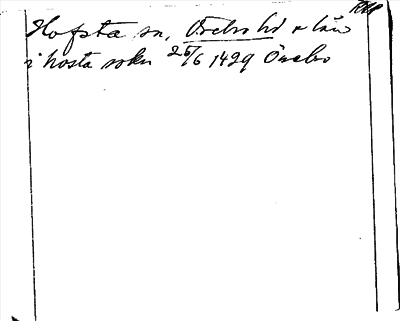 Hofsta sn, Örebro hd o län
i hosta sokn 25/6 1429 Örebro